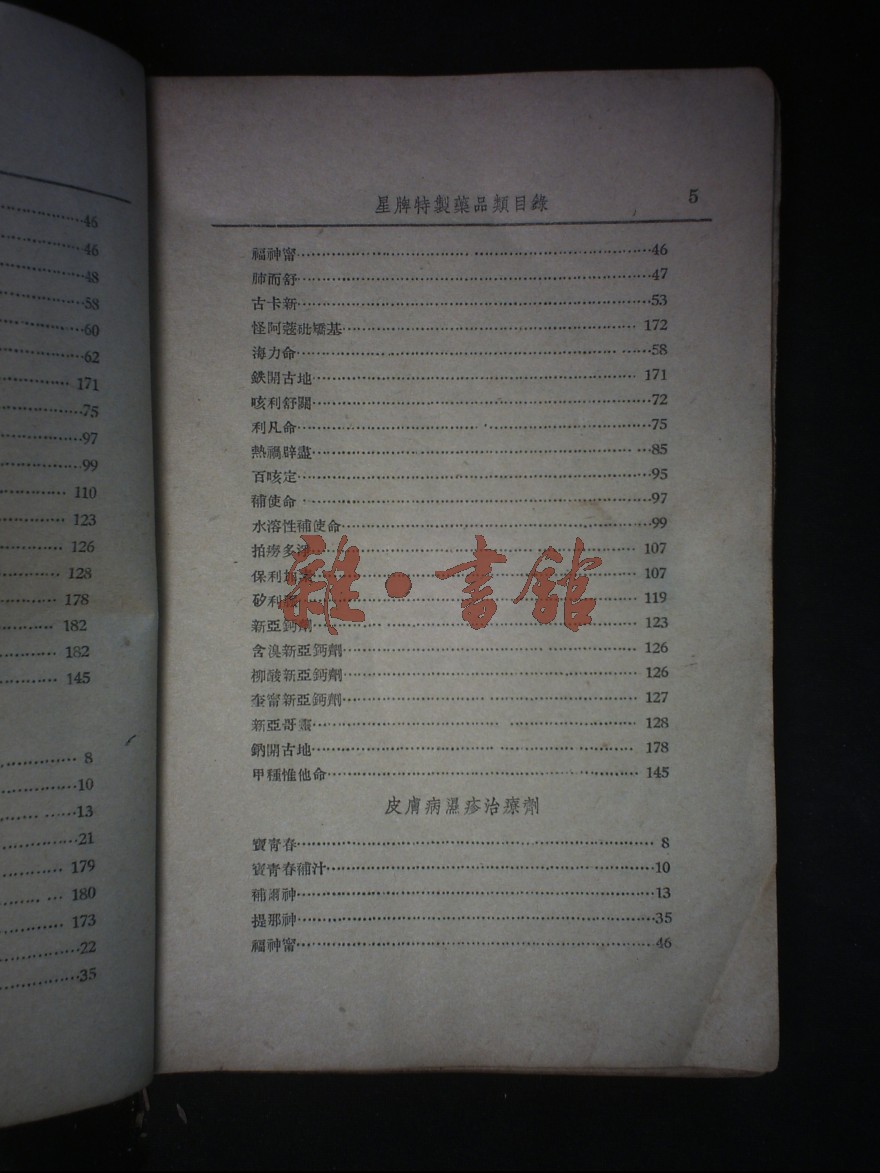 46
46
48
58
60
62
171
75
97
99
110
123
126
128
178
182
182
145
8
10
13
21
179
180
173
22
35
星牌特製藥品類目錄 5
福神甯 46
肺而舒 47
古卡新 53
怪阿蔻砒礦基 172
海力命 58
鉄開古地 171
咳利舒關 72
利凡命 75
熱禍辟盡 85
百咳定 95
補使命 97
水溶性補使命 99
拍癆多 107
保利 107
矽利 119
新亞鈣劑 123
含溴新亞鈣劑 126
柳酸新亞鈣劑 126
奎甯新亞鈣劑 127
新亞哥靈 128
鈉開古地 178
甲種惟他命 145
皮膚病濕疹治療劑
寶青春 8
寳青春補汁 10
補爾神 13
提那神 35
福神甯 46
雜·書館